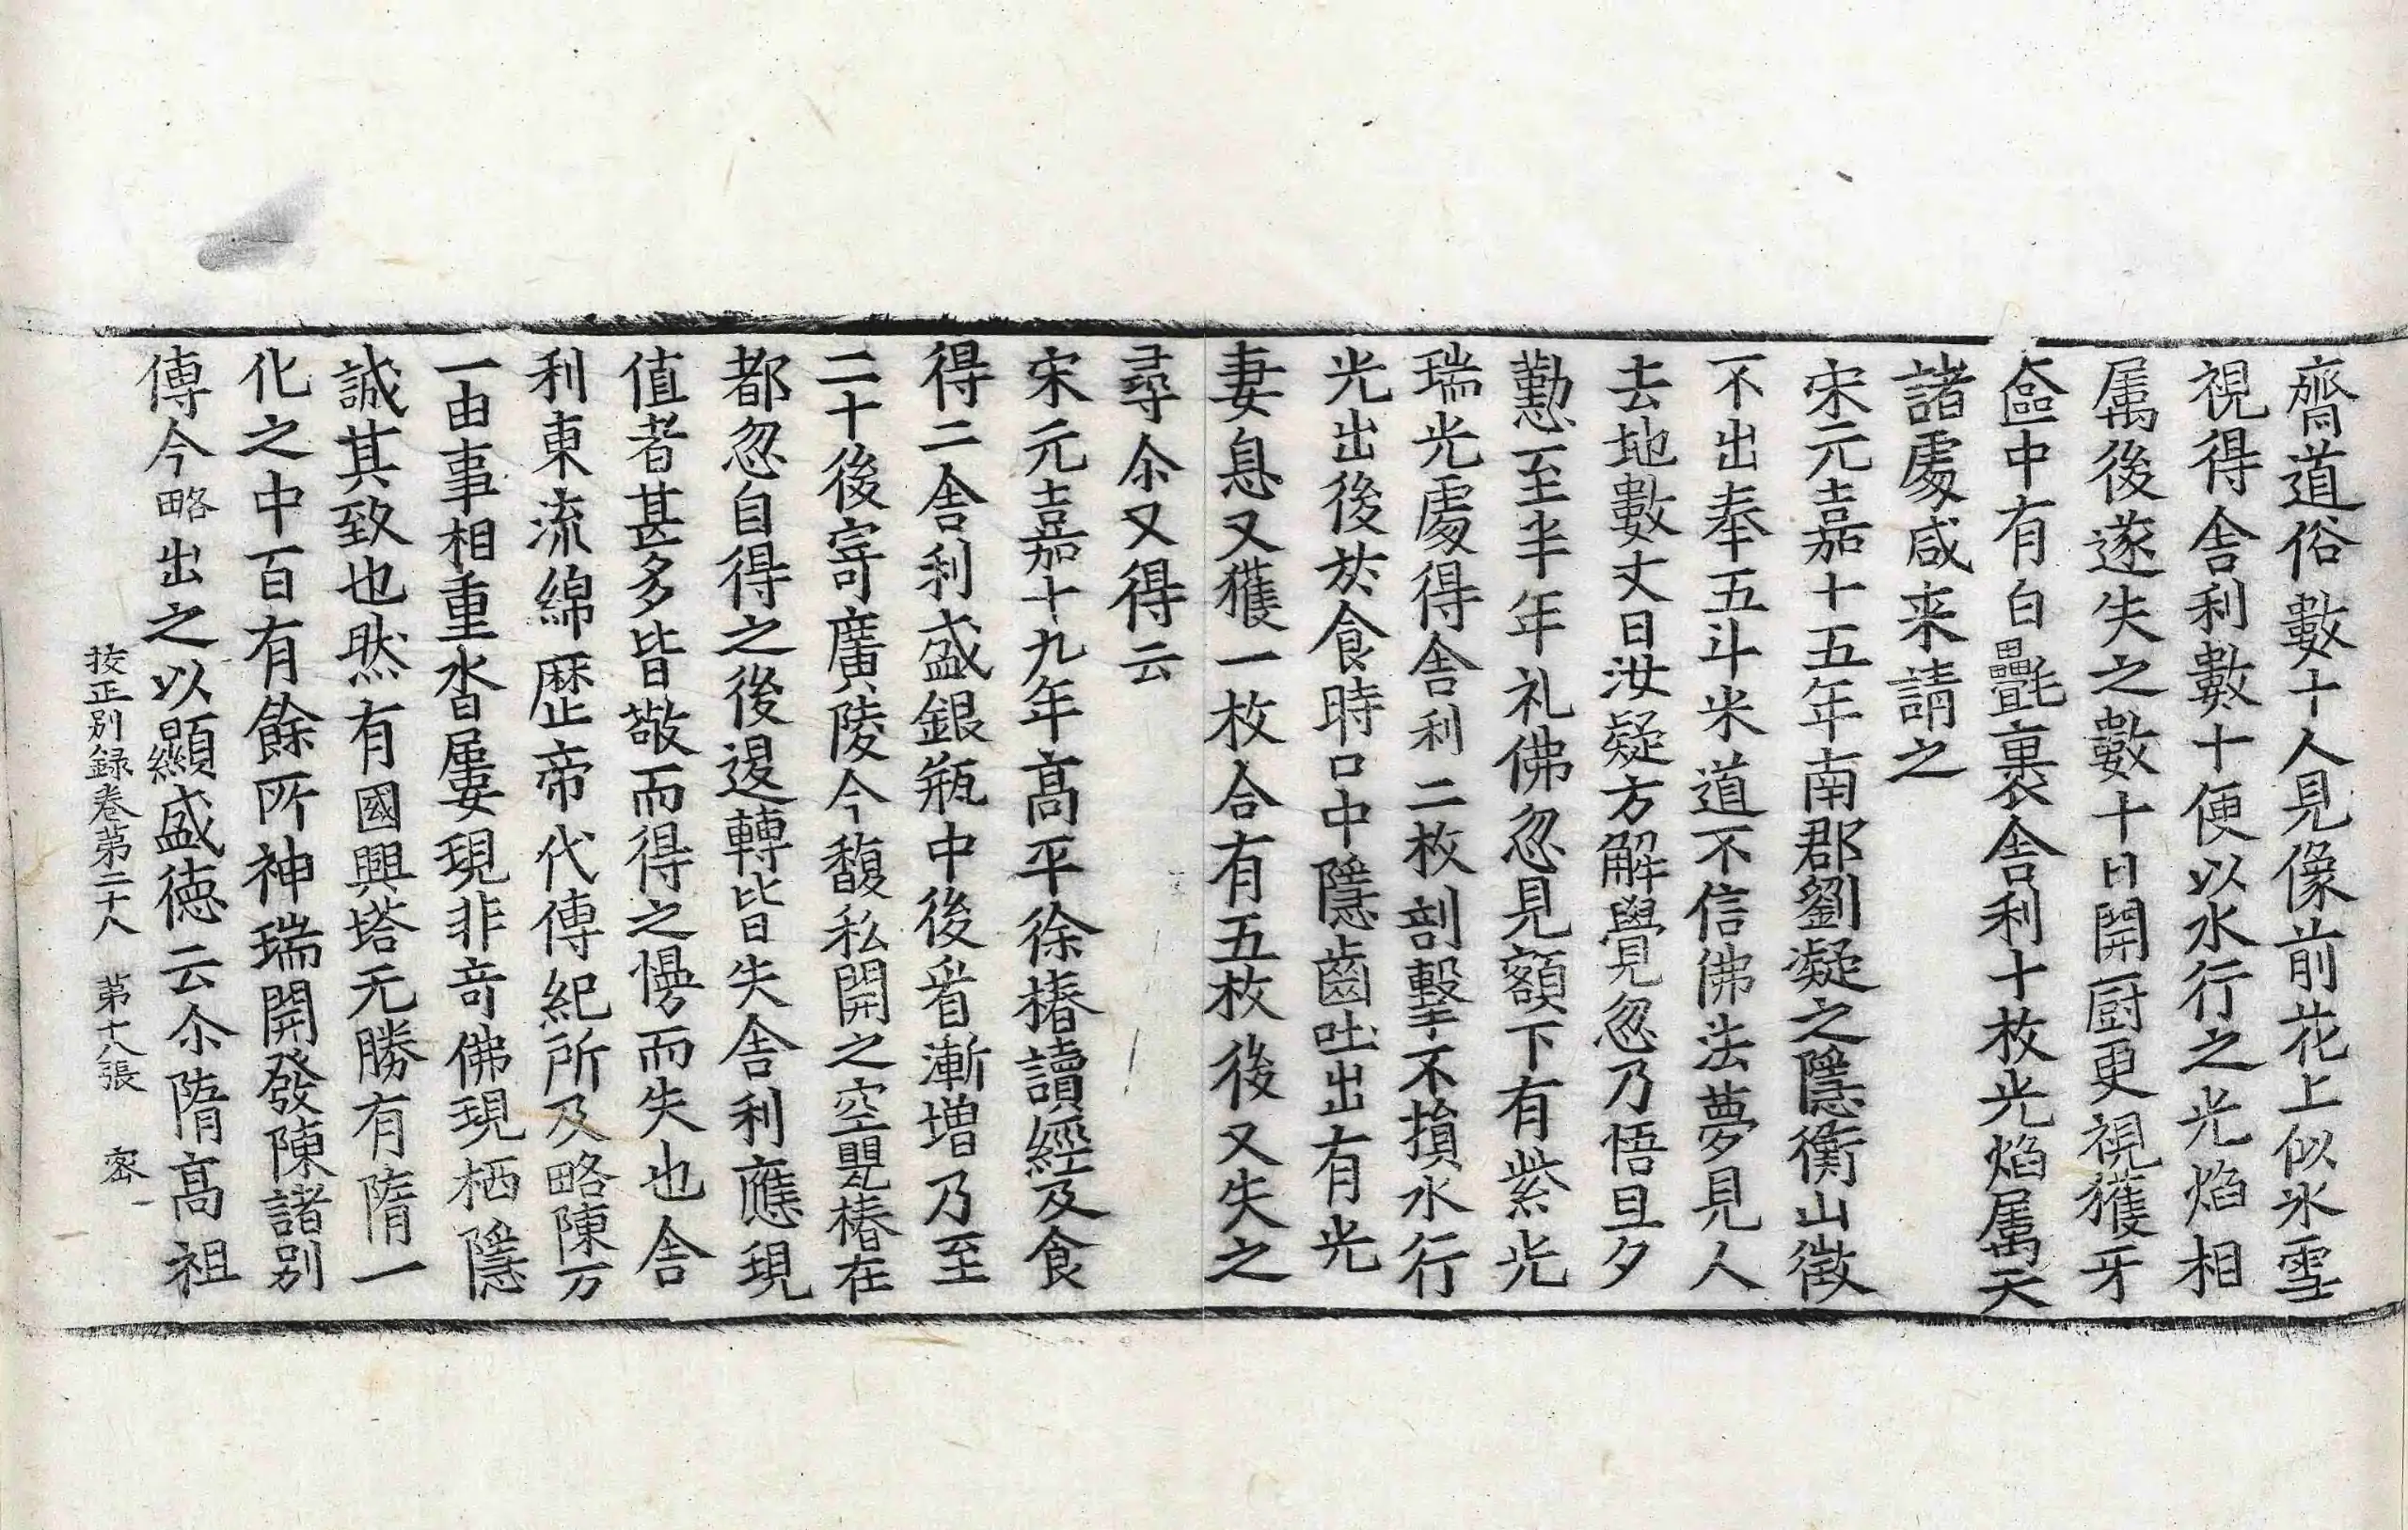 齋道俗數十人見像前花上似氷雪
視得舎利數十便以水行之光焰相
属後遂失之數十日開厨更視獲牙
奩中有白㲲裹舎利十枚光焰属天
諸處咸来請之
宋元嘉十五年南郡劉凝之隱衡山徴
不出奉五斗米道不信佛法夢見人
去地數丈曰汝疑方解覺忽乃悟旦夕
懃至半年礼佛忽見額下有紫光
瑞光處得舎利二枚剖擊不損水行
光出後於食時口中隱齒吐出有光
妻息又獲一枚合有五枚後又失之
尋尒又得云
宋元嘉十九年髙平徐椿讀經及食
得二舎利盛銀瓶中後看漸增乃至
二十後寄廣陵令馥私開之空甖椿在
都忽自得之後退轉皆失舎利應現
值者甚多皆敬而得之慢而失也舎
利東流綿歴帝代傳紀所及略陳万
一由事相重沓屢現非竒佛現栖隱
誠其致也然有國興塔无勝有隋一
化之中百有餘所神瑞開發陳諸别
傳今略出之以顯盛徳云尒隋髙祖
挍正别録卷苐二十八　苐十八張　宻